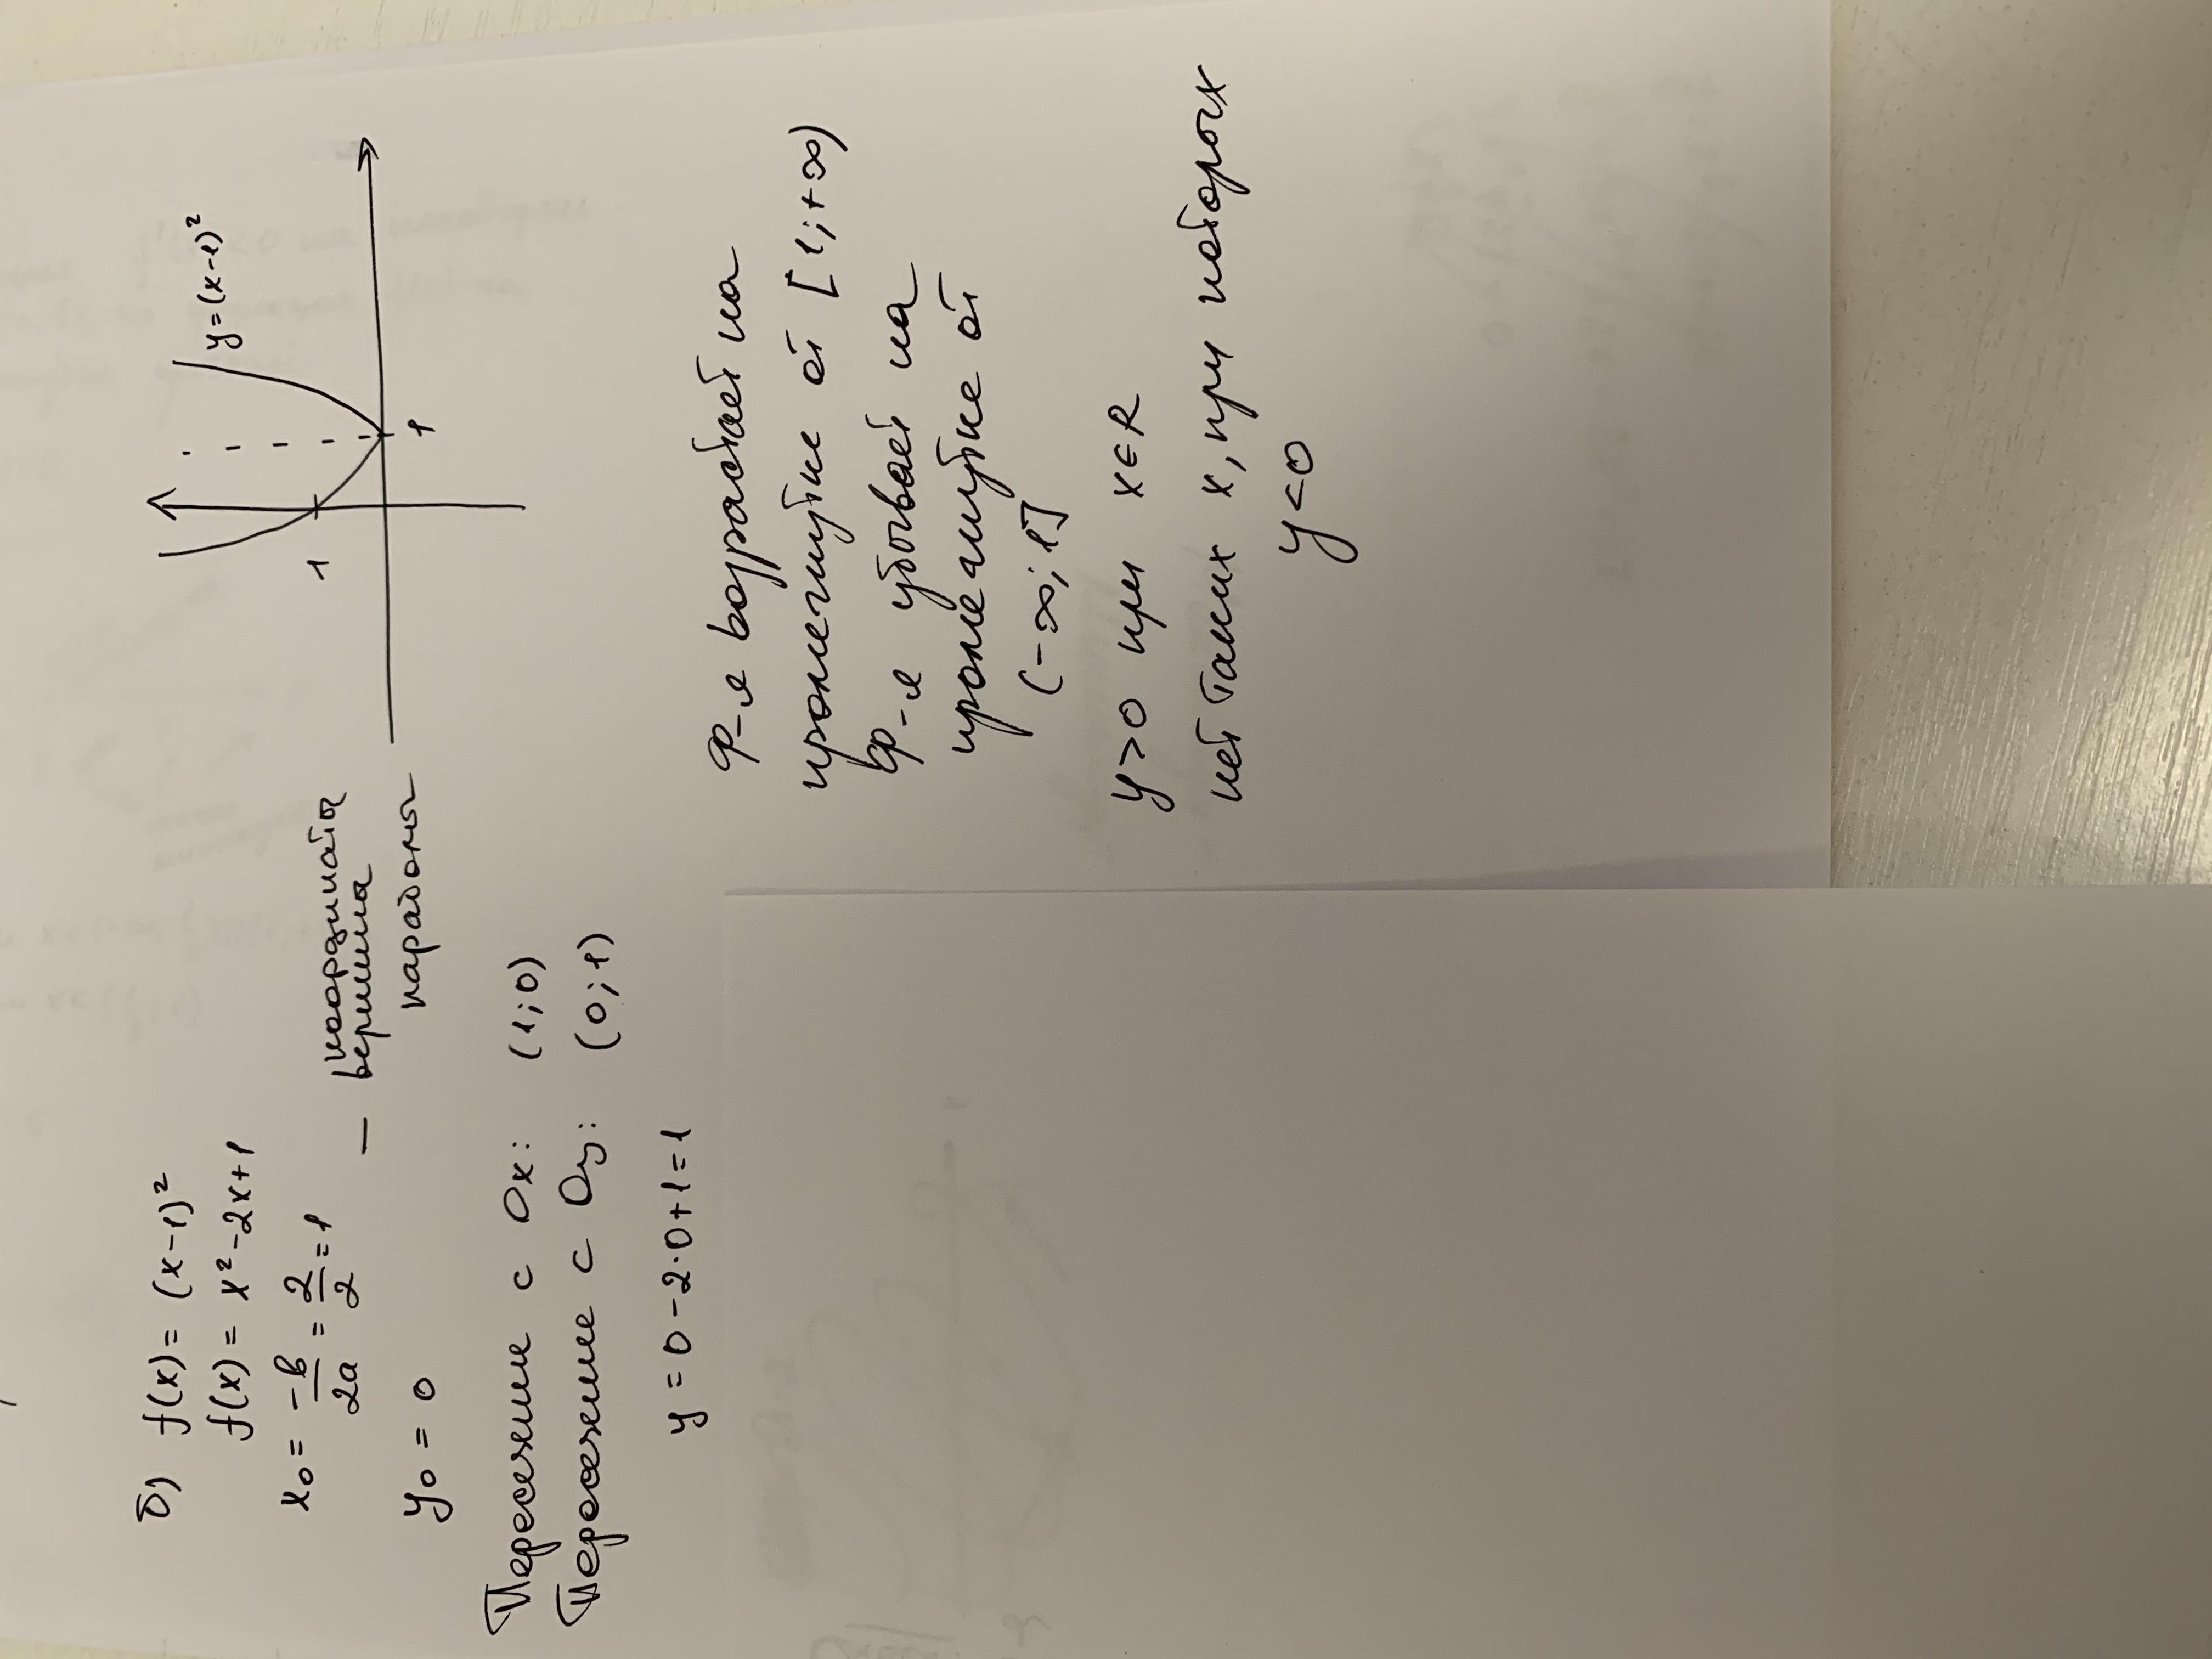 б) f(x) = (x-1)²
f(x) = x² - 2x + 1
x₀ = -b/2a = 2/2 = 1
y₀ = 0
— координаты
вершины
параболы
Пересечение с Ox: (1; 0)
Пересечение с Oy: (0; 1)
y = 0 - 2·0 + 1 = 1
y = (x-1)²
1
1
ф-я возрастает на
промежутке от [1; +∞)
ф-я убывает на
промежутке от
(-∞; 1]
y > 0 при x ∈ R
нет таких x, при которых
y < 0